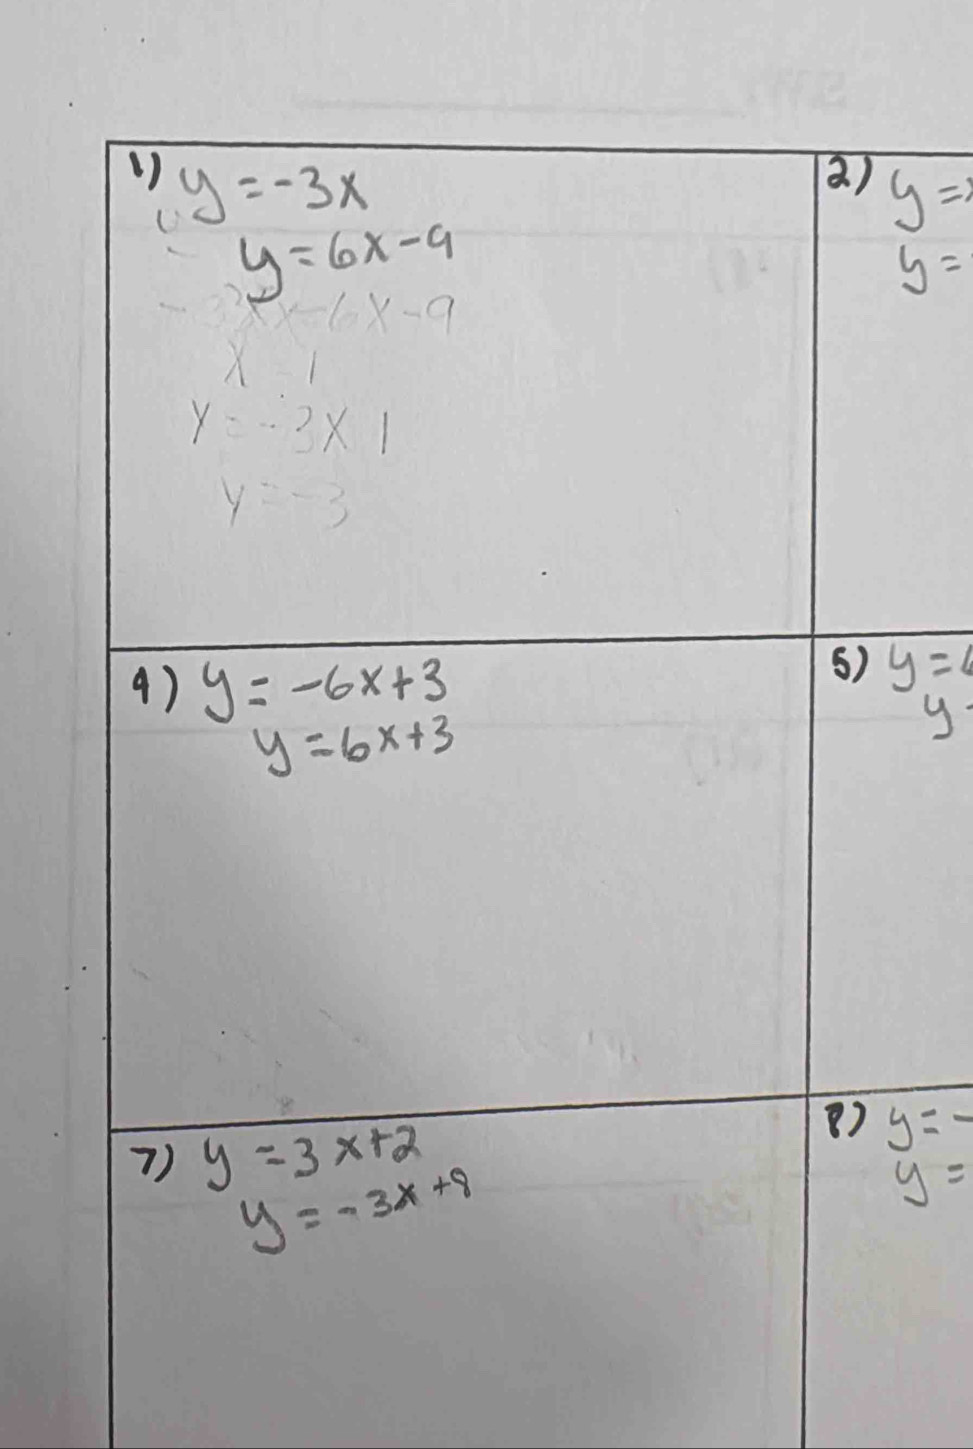 1) y = -3x
y = 6x - 9
x = 1
y = -3 x 1
y = -3
2) y =
y =
4) y = -6x + 3
y = 6x + 3
5) y =
y
7) y = 3x + 2
y = -3x + 8
8) y = -
y =